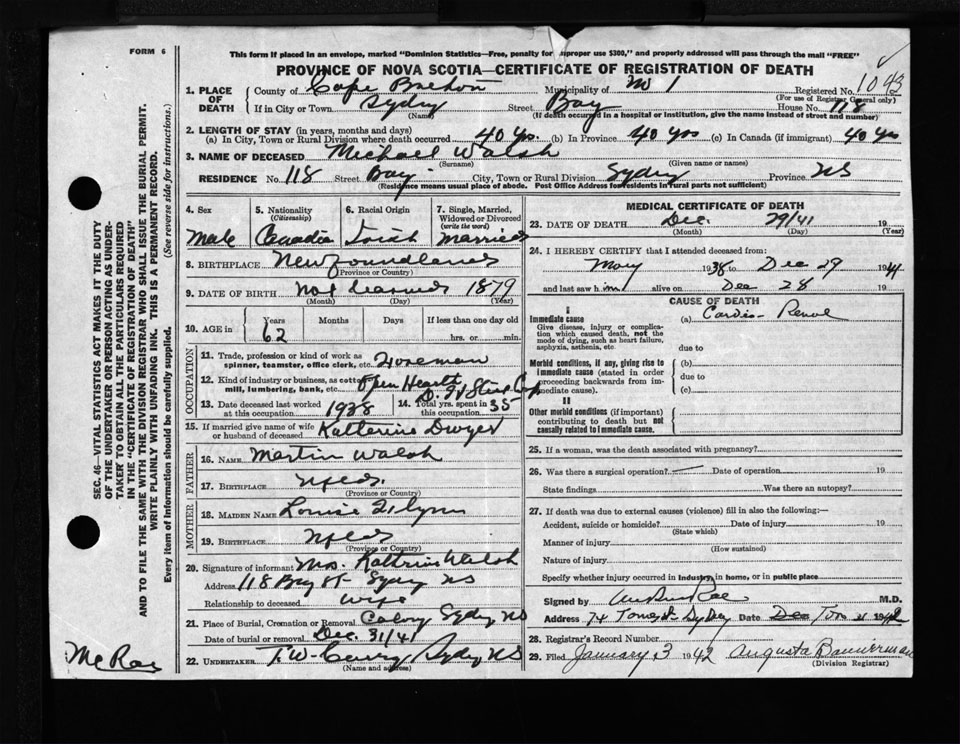 FORM 6
This form if placed in an envelope, marked "Dominion Statistics—Free, penalty for improper use $300," and properly addressed will pass through the mail "FREE"
PROVINCE OF NOVA SCOTIA—CERTIFICATE OF REGISTRATION OF DEATH
1. PLACE OF DEATH County of Cape Breton Municipality of No 1 Registered No. 1043
(For use of Registrar General only)
If in City or Town Sydney Street Bay House No. 118
(Name) (If death occurred in a hospital or institution, give the name instead of street and number)
2. LENGTH OF STAY (in years, months and days)
(a) In City, Town or Rural Division where death occurred 40 yrs. (b) In Province 40 yrs (c) In Canada (if immigrant) 40 yrs
3. NAME OF DECEASED Michael Walsh
(Surname) (Given name or names)
RESIDENCE No. 118 Street Bay City, Town or Rural Division Sydney Province NS
(Residence means usual place of abode. Post Office Address for residents in rural parts not sufficient)
4. Sex Male
5. Nationality (Citizenship)
6. Racial Origin Irish
7. Single, Married, Widowed or Divorced (write the word) Married
8. BIRTHPLACE Newfoundland
(Province or Country)
9. DATE OF BIRTH Not Learned 1879
(Month) (Day) (Year)
10. AGE in Years Months Days If less than one day old
62 hrs. or min.
OCCUPATION
11. Trade, profession or kind of work as spinner, teamster, office clerk, etc. Foreman
12. Kind of industry or business, as cotton mill, lumbering, bank, etc. Open Hearth
13. Date deceased last worked at this occupation 1938
14. Total yrs. spent in this occupation 35
15. If married give name of wife or husband of deceased Katherine Dwyer
FATHER
16. NAME Martin Walsh
17. BIRTHPLACE Nfld.
(Province or Country)
MOTHER
18. MAIDEN NAME Louise
19. BIRTHPLACE Nfld
(Province or Country)
20. Signature of informant Mrs. Kathrine Walsh
Address 118 Bay St Sydney NS
Relationship to deceased wife
21. Place of Burial, Cremation or Removal Sydney NS
Date of burial or removal Dec. 31/41
22. UNDERTAKER T. W. Sydney, NS
(Name and address)
MEDICAL CERTIFICATE OF DEATH
23. DATE OF DEATH Dec. 29/41 19
(Month) (Day) (Year)
24. I HEREBY CERTIFY that I attended deceased from:
May 1938 to Dec 29 1941
and last saw him alive on Dec 28 19
CAUSE OF DEATH
I
Immediate cause (a) Cardio-Renal
Give disease, injury or complication which caused death, not the mode of dying, such as heart failure, asphyxia, asthenia, etc.
due to
Morbid conditions, if any, giving rise to immediate cause (stated in order proceeding backwards from immediate cause).
(b)
due to
(c)
II
Other morbid conditions (if important) contributing to death but not causally related to immediate cause.
25. If a woman, was the death associated with pregnancy?
26. Was there a surgical operation? — Date of operation 19
State findings Was there an autopsy?
27. If death was due to external causes (violence) fill in also the following:—
Accident, suicide or homicide? Date of injury 19
(State which)
Manner of injury
(How sustained)
Nature of injury
Specify whether injury occurred in Industry, in home, or in public place
Signed by M.D.
Address 74 Sydney Date 1942
28. Registrar's Record Number
29. Filed January 3 1942 Augusta Bannerman
(Division Registrar)
SEC. 46—VITAL STATISTICS ACT MAKES IT THE DUTY
OF THE UNDERTAKER OR PERSON ACTING AS UNDERTAKER TO OBTAIN ALL THE PARTICULARS REQUIRED
IN THE "CERTIFICATE OF REGISTRATION OF DEATH"
AND TO FILE THE SAME WITH THE DIVISION REGISTRAR WHO SHALL ISSUE THE BURIAL PERMIT.
WRITE PLAINLY WITH UNFADING INK. THIS IS A PERMANENT RECORD.
Every item of information should be carefully supplied. (See reverse side for instructions.)
McRae